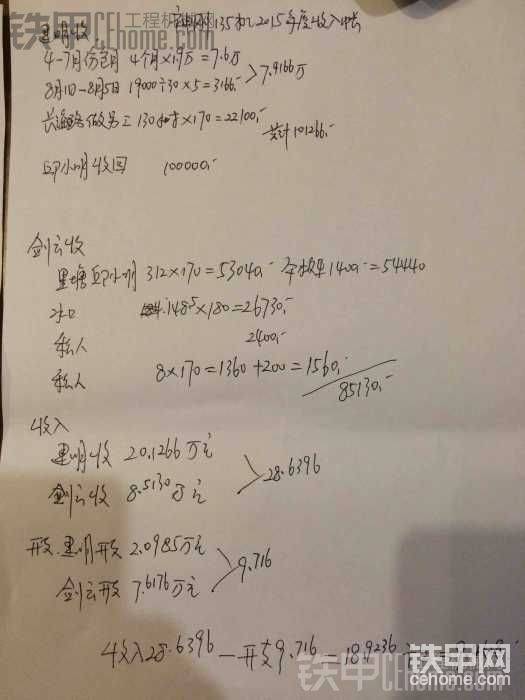 135机2015年度收入账
里明收
4-7月份包月 4个月×1.9万=7.6万
8月1日-8月5日 19000÷30×5=3166.-
7.9166万
130小时×170=22100.-
共计101266.-
邱小明收回 100000.-
剑云收
里塘邱小明 312×170=53040.- 1400.-=54440
水口 148.5×180=26730.-
私人 2400.-
私人 8×170=1360+200=1560.-
85130.-
收入
里明收 20.1266万元
剑云收 8.5130万元
28.6396
开支 里明开支 2.0985万元
剑云开支 7.6176万元
9.716
收入28.6396-开支9.716=18.9236
铁甲网
cehome.com